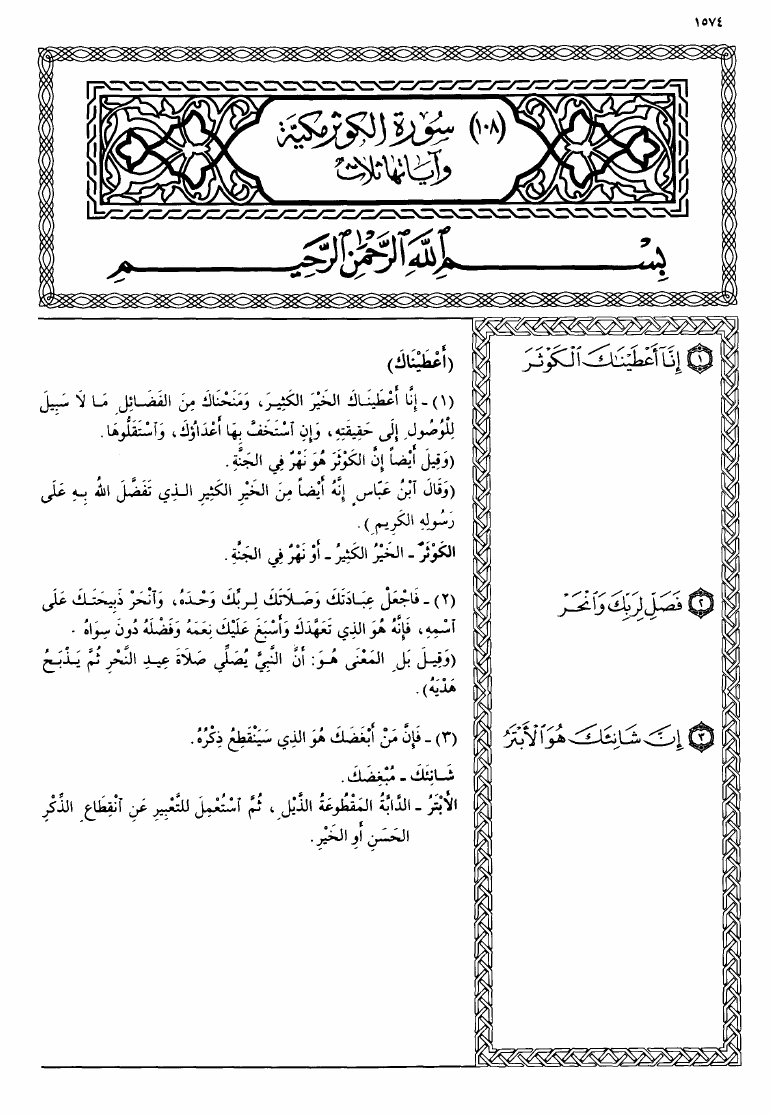 ١٥٧٤
(١٠٨) سُورَة الكَوثَر مَكيَّة
وَآيَاتهَا ثَلاَثٌ
بِسْمِ ٱللَّهِ ٱلرَّحْمَٰنِ ٱلرَّحِيمِ
(١) إِنَّآ أَعْطَيْنَٰكَ ٱلْكَوْثَرَ
(٢) فَصَلِّ لِرَبِّكَ وَٱنْحَرْ
(٣) إِنَّ شَانِئَكَ هُوَ ٱلْأَبْتَرُ
(أَعْطَيْنَاكَ)
(١) - إِنَّا أَعْطَينَاكَ الخَيْرَ الكَثِيرَ، وَمَنَحْنَاكَ مِنَ الفَضَائِلِ مَا لَا سَبِيلَ
لِلْوُصُولِ إِلَى حَقِيقَتِهِ، وَإِنِ ٱسْتَخَفَّ بِهَا أَعْدَاؤكَ، وَٱسْتَقَلُّوهَا.
(وَقِيلَ أَيْضاً إِنَّ الكَوْثَرَ هُوَ نَهْرٌ فِي الجَنَّةِ.
(وَقَالَ ٱبْنُ عَبَّاسٍ إِنَّهُ أَيْضاً مِنَ الخَيْرِ الكَثِيرِ الذِي تَفَضَّلَ اللهُ بِهِ عَلَى
رَسُولِهِ الكَرِيمِ).
الكَوْثَرُ - الخَيْرُ الكَثِيرُ - أَوْ نَهْرٌ فِي الجَنَّةِ.
(٢) - فَاجْعَلْ عِبَادَتَكَ وَصَلَاتَكَ لِرَبِّكَ وَحْدَهُ، وَٱنْحَرْ ذَبِيحَتَكَ عَلَى
ٱسْمِهِ، فَإِنَّهُ هُوَ الذِي تَعَهَّدَكَ وَأَسْبَغَ عَلَيْكَ نِعَمَهُ وَفَضْلَهُ دُونَ سِوَاهُ.
(وَقِيلَ بَلِ المَعْنَى هُوَ: أَنَّ النَّبِيَّ يُصَلِّي صَلَاةَ عِيدِ النَّحْرِ ثُمَّ يَذْبَحُ
هَدْيَهُ).
(٣) - فَإِنَّ مَنْ أَبْغَضَكَ هُوَ الذِي سَيَنْقَطِعُ ذِكْرُهُ.
شَانِئَكَ - مُبْغِضَكَ.
الأَبْتَرُ - الدَّابَّةُ المَقْطُوعَةُ الذَّيْلِ، ثُمَّ ٱسْتُعْمِلَ لِلتَّعْبِيرِ عَنِ ٱنْقِطَاعِ الذِّكْرِ
الحَسَنِ أَوِ الخَيْرِ.